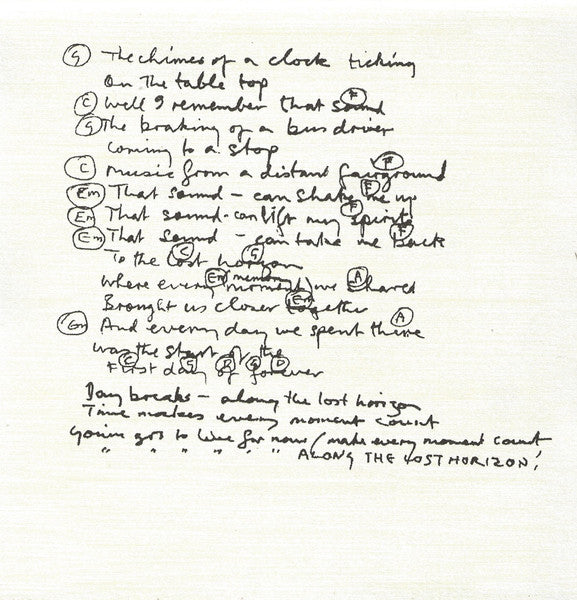 (G) The chimes of a clock ticking
on the table top
(C) Well I remember that sound (F)
(G) The braking of a bus driver
coming to a stop
(C) music from a distant fairground (F)
(Em) That sound - can shake me up (F)
(Em) That sound - can lift my spirits (F)
(Em) That sound - can take me back (F)
To the lost horizon (C) (G)
where every (moment) memory we shared (Em) (A)
Brought us closer together (Em)
(Em) And every day we spent there (A)
was the start of the
First day of forever (C) (G) (G) (D)
Day breaks - along the lost horizon
Time makes every moment count
You've got to live for now / make every moment count
" " " " " " ALONG THE LOST HORIZON!